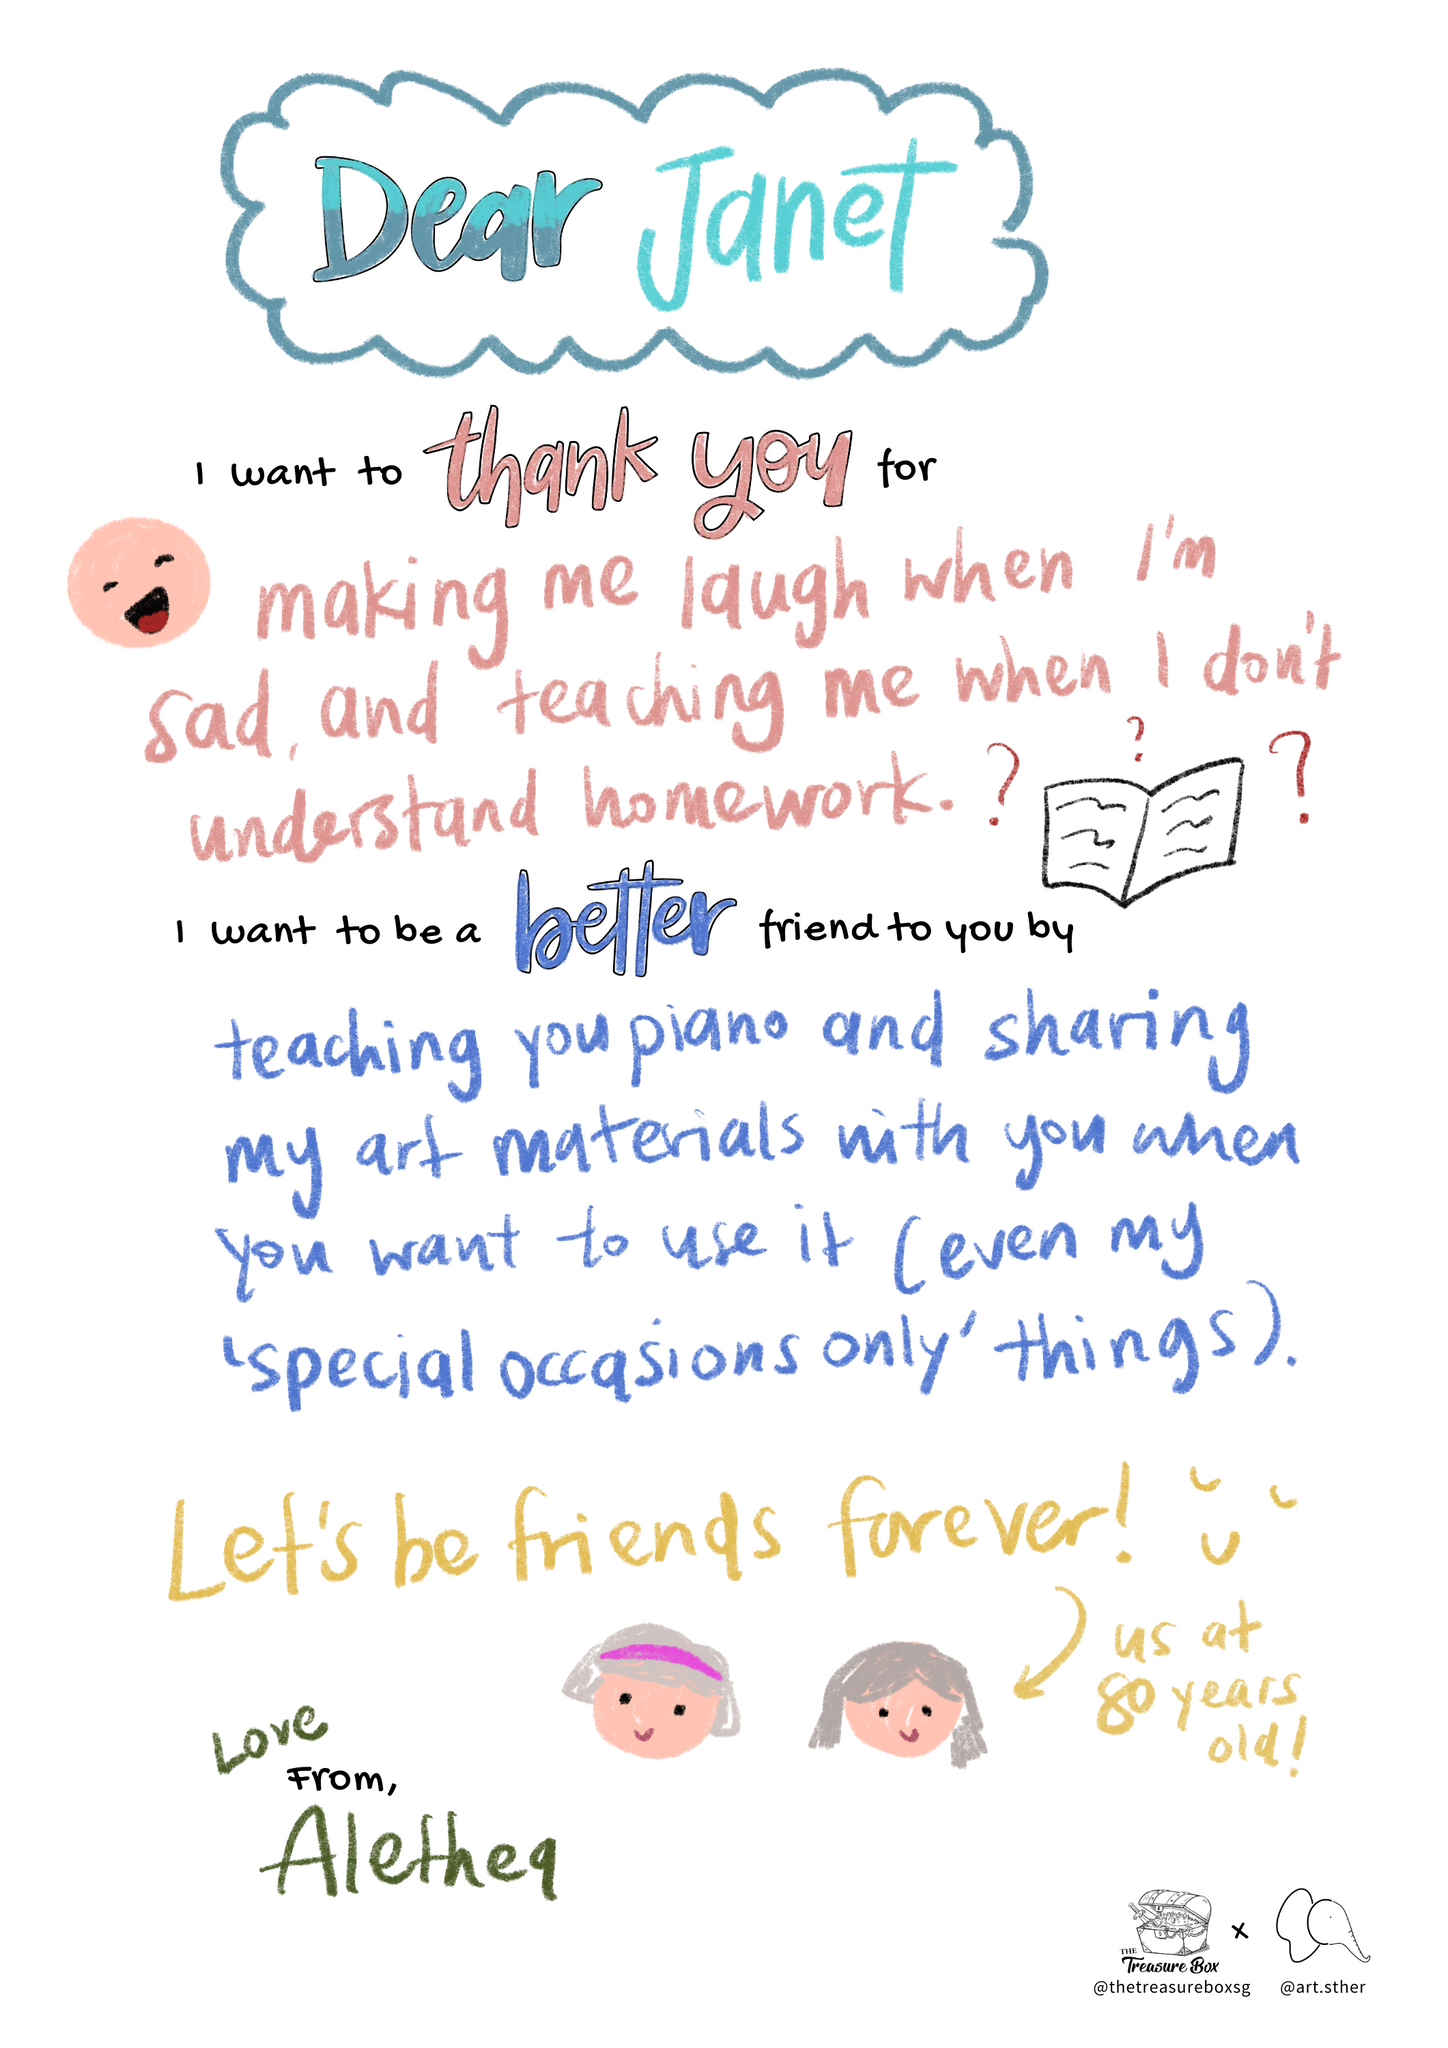 Dear Janet
I want to thank you for
making me laugh when I'm
sad, and teaching me when I don't
understand homework. ? ? ?
I want to be a better friend to you by
teaching you piano and sharing
my art materials with you when
you want to use it (even my
'special occasions only' things).
Let's be friends forever!
us at
80 years
old!
Love
From,
Alethea
THE
TREASURE BOX
x
@thetreasureboxsg
@art.sther